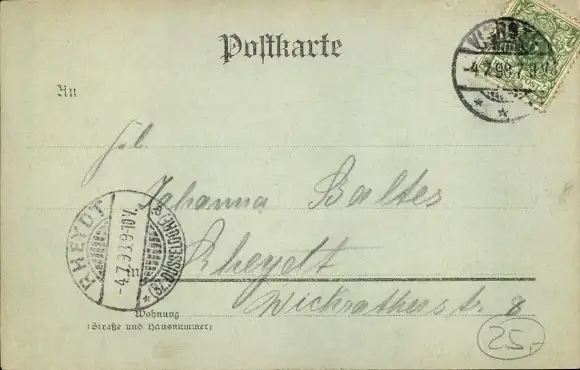 Postkarte
An
Frl.
Johanna Baltes
in Rheydt
Wickratherstr. 8
Wohnung
(Straße und Hausnummer)
RHEYDT
-4.7.98.9-10V.
*(BZ.DÜSSELDORF)*
VIERSEN
-4.7.98.7
25,-